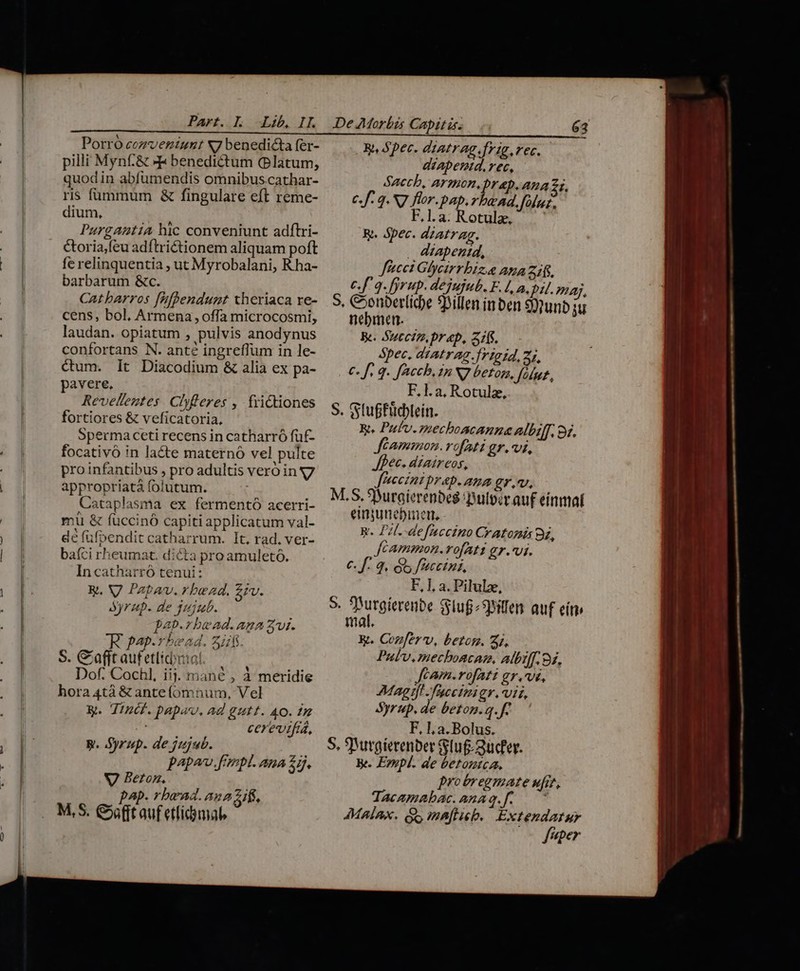 Part. I. Lib. II. De Morbis Capitis. 63
Porrò conveniunt 🜄 benedicta ſer-
pilli Mynſ. & ✠ benedictum Glatum,
quod in abſumendis omnibus cathar-
ris ſummum & ſingulare eſt reme-
dium.
Purgantia hîc conveniunt adſtri-
ctoria, ſeu adſtrictionem aliquam poſt
ſe relinquentia, ut Myrobalani, Rha-
barbarum &c.
Catharros ſuſpendunt theriaca re-
cens, bol. Armena, offa microcosmi,
laudan. opiatum, pulvis anodynus
confortans N. antè ingreſſum in le-
ctum. It Diacodium & alia ex pa-
pavere.
Revellentes Clyſteres, frictiones
fortiores & veſicatoria.
Spermaceti recens in catharrô ſuf-
focativô in lacte maternô vel pulte
pro infantibus, pro adultis verò in 🜄
appropriatâ ſolutum.
Cataplasma ex fermentô acerri-
mû & ſuccinô capiti applicatum val-
dè ſuſpendit catharrum. It. rad. ver-
baſci rheumat. dicta pro amuletô.
In catharrô tenui:
℞. 🜄 Papav. rhœad. ℥iv.
Syrup. de jujub.
pap. rhœad. ana ʒvi.
pap. rhœad. ʒiiß.
S. Safft auf etlichmal.
Doſ. Cochl. iij. manè, à meridie
hora 4tâ & ante ſomnum, Vel
℞. Tinct. papav. ad gutt. 40. in
cereviſiâ,
℞. Syrup. de jujub.
papav. ſimpl. ana ℥ij,
🜄 Beton.
pap. rhœad. ana ℥iß,
M. S. Safft auf etlichmal.
℞. Spec. diatrag. frig. rec.
diapenid. rec,
Sacch. armon. præp. ana ʒi.
c. ſ. q. 🜄 flor. pap. rhœad. ſolut.
F. l. a. Rotulæ.
℞. Spec. diatrag.
diapenid,
ſucci Glycirrhizæ ana ʒiß,
c. ſ. q. ſyrup. de jujub. F. l. a. pil. maj.
S. Sonderliche Pillen in den Mund zu
nehmen.
℞. Succin. præp. ʒiß.
Spec. diatrag. frigid. ʒi,
c. ſ. q. ſacch. in 🜄 beton. ſolut,
F. l. a. Rotulæ.
S. Flußküchlein.
℞. Pulv. mechoacannæ albiſſ. ℈i.
ſcammon. roſati gr. vi,
ſpec. diaireos,
ſuccini præp. ana gr. v.
M. S. Purgierendes Pulver auf einmal
einzunehmen.
℞. Pil. de ſuccino Cratonis ℈i,
ſcammon. roſati gr. vi.
c. ſ. q. ol. ſuccini,
F. l. a. Pilulæ,
S. Purgierende Fluß-Pillen auf ein-
mal.
℞. Conſerv. beton. ʒi,
Pulv. mechoacan. albiſſ. ℈i,
ſcam. roſati gr. vi,
Magiſt. ſuccini gr. vii,
Syrup. de beton. q. ſ.
F. l. a. Bolus.
S. Purgierender Fluß-Zucker.
℞. Empl. de betonica.
pro bregmate uſit,
Tacamahac. ana q. ſ.
Malax. ol. maſtich. Extendatur
ſuper